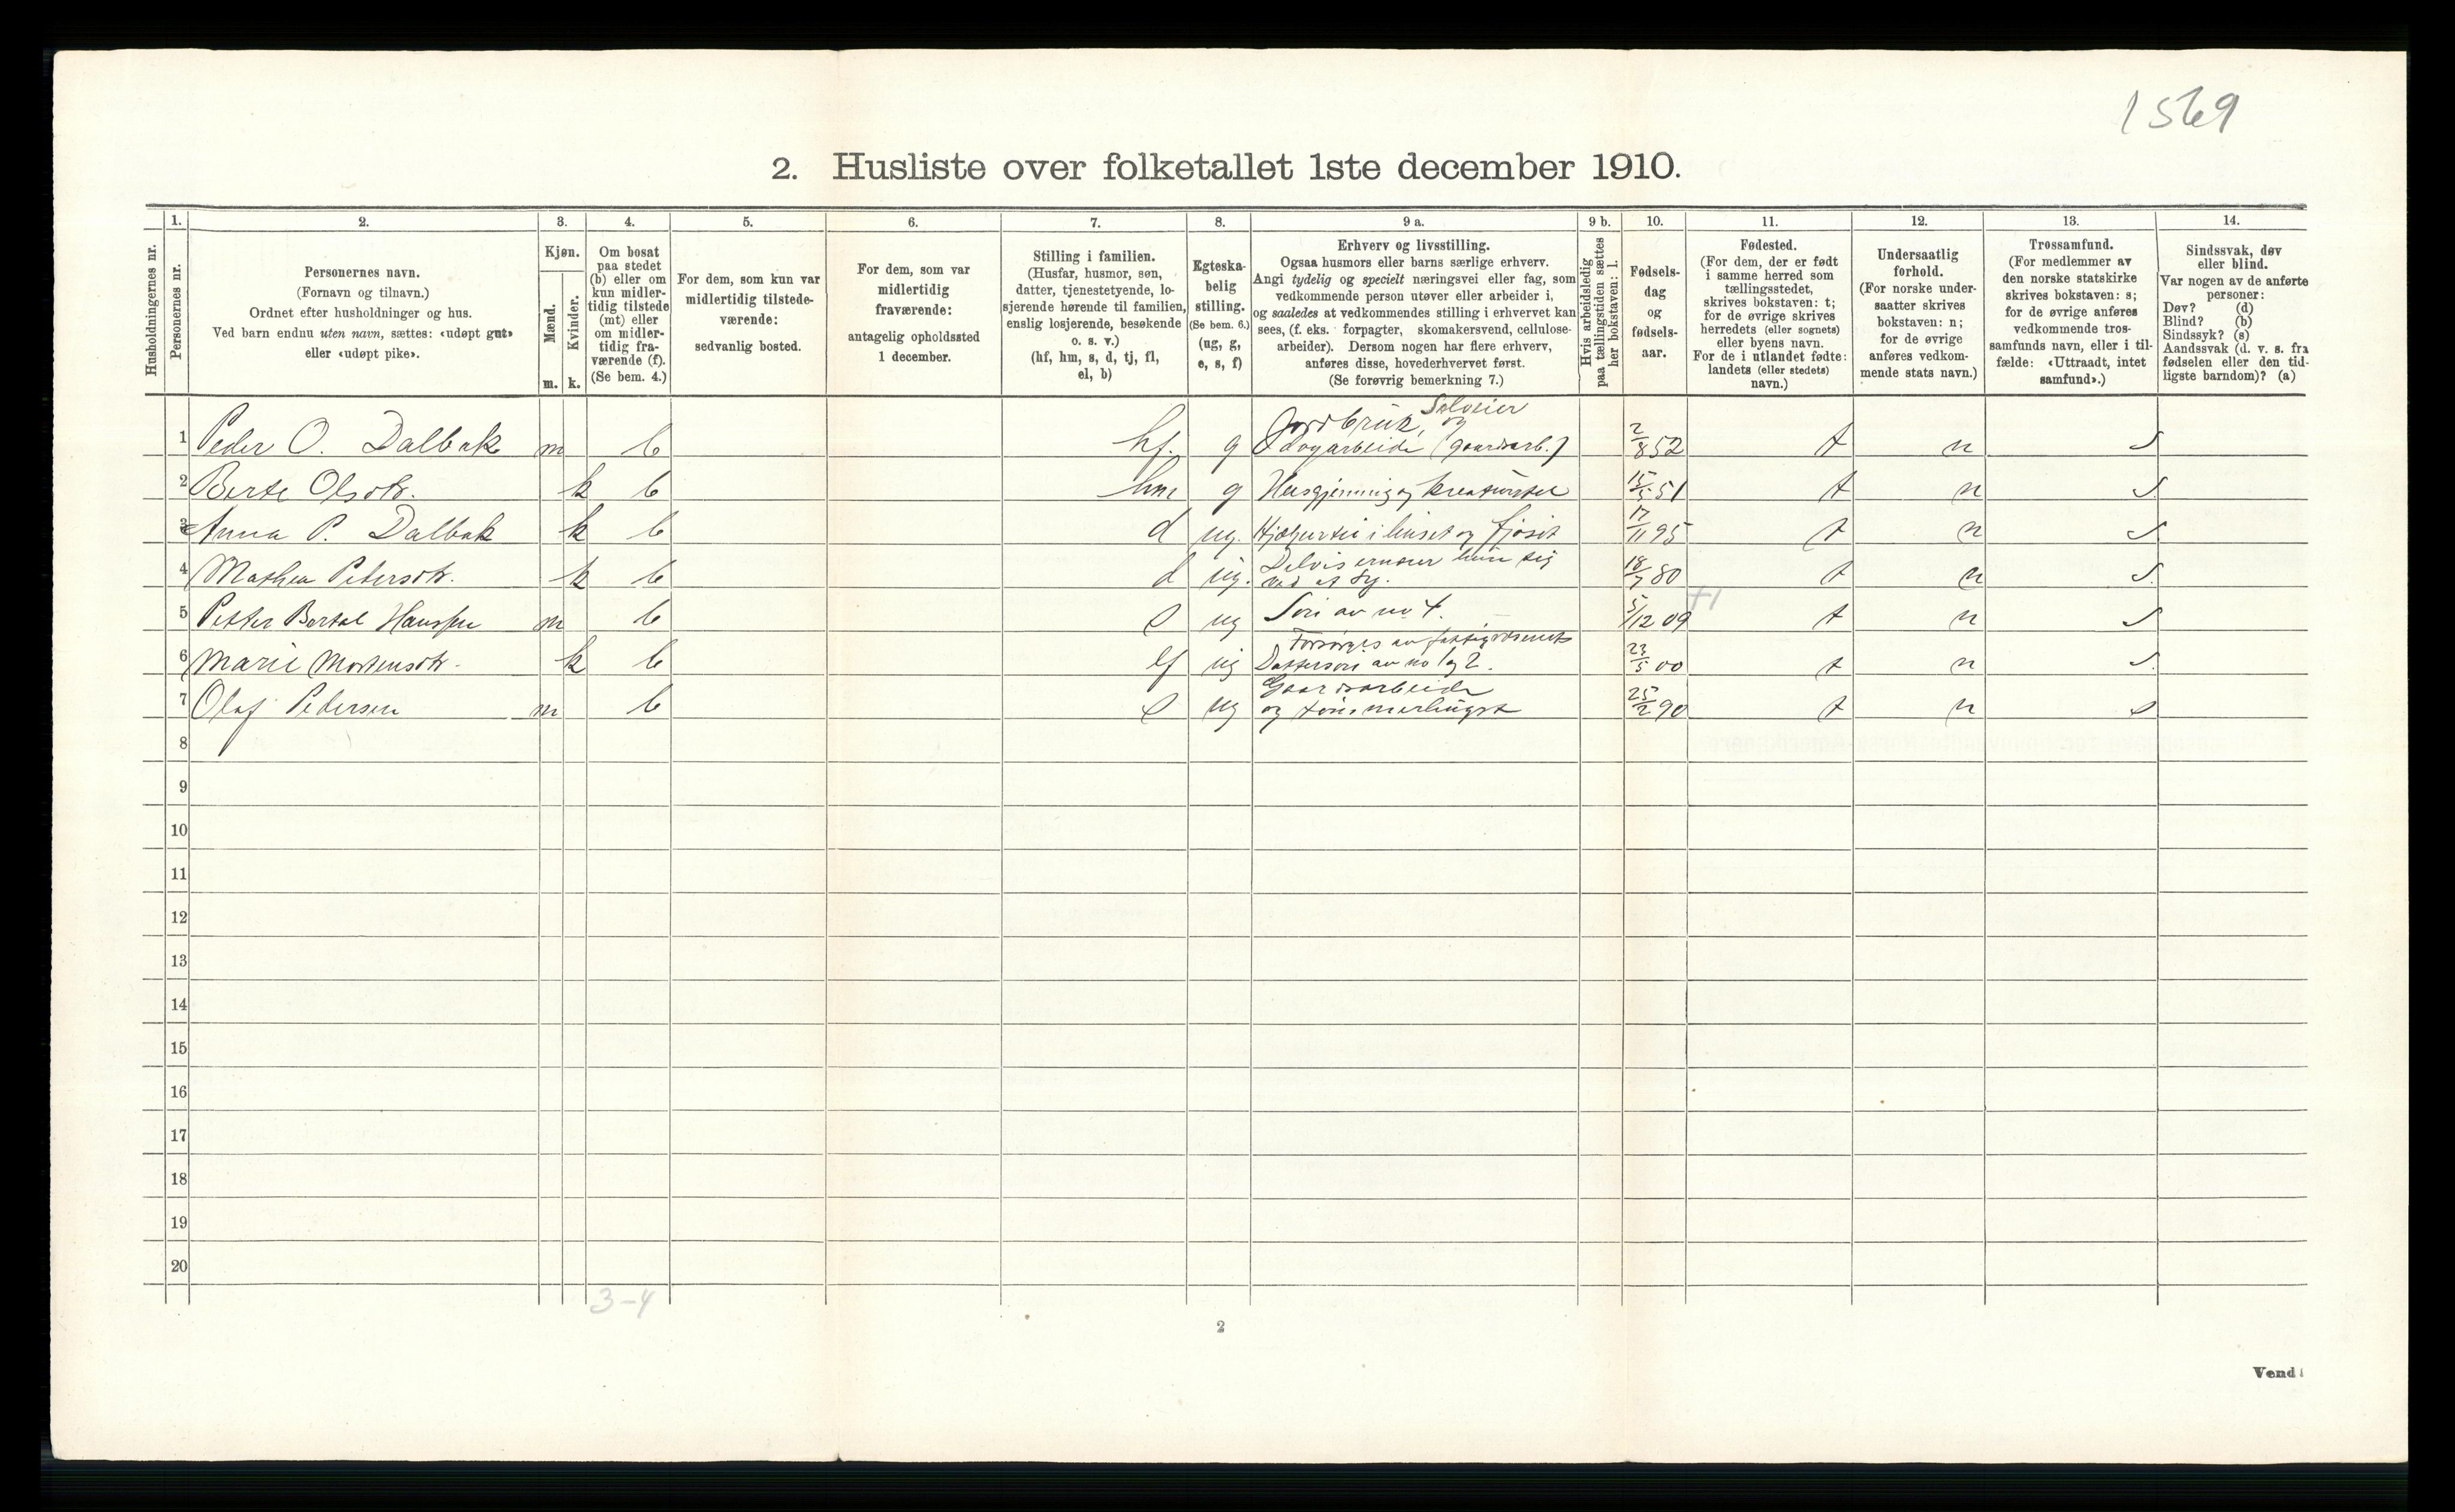 1569
2. Husliste over folketallet 1ste december 1910.
Husholdningernes nr.
1.
Personernes nr.
2.
Personernes navn.
(Fornavn og tilnavn.)
Ordnet efter husholdninger og hus.
Ved barn endnu uten navn, sættes: «udøpt gut»
eller «udøpt pike».
3.
Kjøn.
Mænd.
m.
Kvinder.
k.
4.
Om bosat
paa stedet
(b) eller om
kun midler-
tidig tilstede
(mt) eller
om midler-
tidig fra-
værende (f).
(Se bem. 4.)
5.
For dem, som kun var
midlertidig tilstede-
værende:
sedvanlig bosted.
6.
For dem, som var
midlertidig
fraværende:
antagelig opholdssted
1 december.
7.
Stilling i familien.
(Husfar, husmor, søn,
datter, tjenestetyende, lo-
sjerende hørende til familien,
enslig losjerende, besøkende
o. s. v.)
(hf, hm, s, d, tj, fl,
el, b)
8.
Egteska-
belig
stilling.
(Se bem. 6.)
(ug, g,
e, s, f)
9 a.
Erhverv og livsstilling.
Ogsaa husmors eller barns særlige erhverv.
Angi tydelig og specielt næringsvei eller fag, som
vedkommende person utøver eller arbeider i,
og saaledes at vedkommendes stilling i erhvervet kan
sees, (f. eks. forpagter, skomakersvend, cellulose-
arbeider). Dersom nogen har flere erhverv,
anføres disse, hovederhvervet først.
(Se forøvrig bemerkning 7.)
9 b.
Hvis arbeidsledig
paa tællingstiden sættes
her bokstaven: l.
10.
Fødsels-
dag
og
fødsels-
aar.
11.
Fødested.
(For dem, der er født
i samme herred som
tællingsstedet,
skrives bokstaven: t;
for de øvrige skrives
herredets (eller sognets)
eller byens navn.
For de i utlandet fødte:
landets (eller stedets)
navn.)
12.
Undersaatlig
forhold.
(For norske under-
saatter skrives
bokstaven: n;
for de øvrige
anføres vedkom-
mende stats navn.)
13.
Trossamfund.
(For medlemmer av
den norske statskirke
skrives bokstaven: s;
for de øvrige anføres
vedkommende tros-
samfunds navn, eller i til-
fælde: «Uttraadt, intet
samfund».)
14.
Sindssvak, døv
eller blind.
Var nogen av de anførte
personer:
Døv? (d)
Blind? (b)
Sindssyk? (s)
Aandssvak (d. v. s. fra
fødselen eller den tid-
ligste barndom)? (a)
Selveier
Jordbruk, og
1 Peder O. Dalbak m b hf. g dagarbeide (gaardsarb.) 2/8 52 t n s
2 Berte Olsdtr. k b hm g Husgjerning og kreaturstel 15/5 51 t n s
3 Anna P. Dalbak k b d ug. i huset og fjøset 17/11 95 t n s
Delvis ernærer hun sig
4 Mathea Pedersdtr. k b d ug. ved at sy. 18/7 80 t n s
5 Petter Bertal Hanssen m b s ug Søn av no 4. 5/12 09 +1 t n s
Forsørges av fattigvæsenet
6 Marie Mortensdtr. k b ug av no 1 og 2. 23/5 00 t n s
Gaardsarbeide
7 Olaf Pedersen m b s ug og tømmerhugst 25/2 90 t n s
8
9
10
11
12
13
14
15
16
17
18
19
20
3-4
2
Vend!